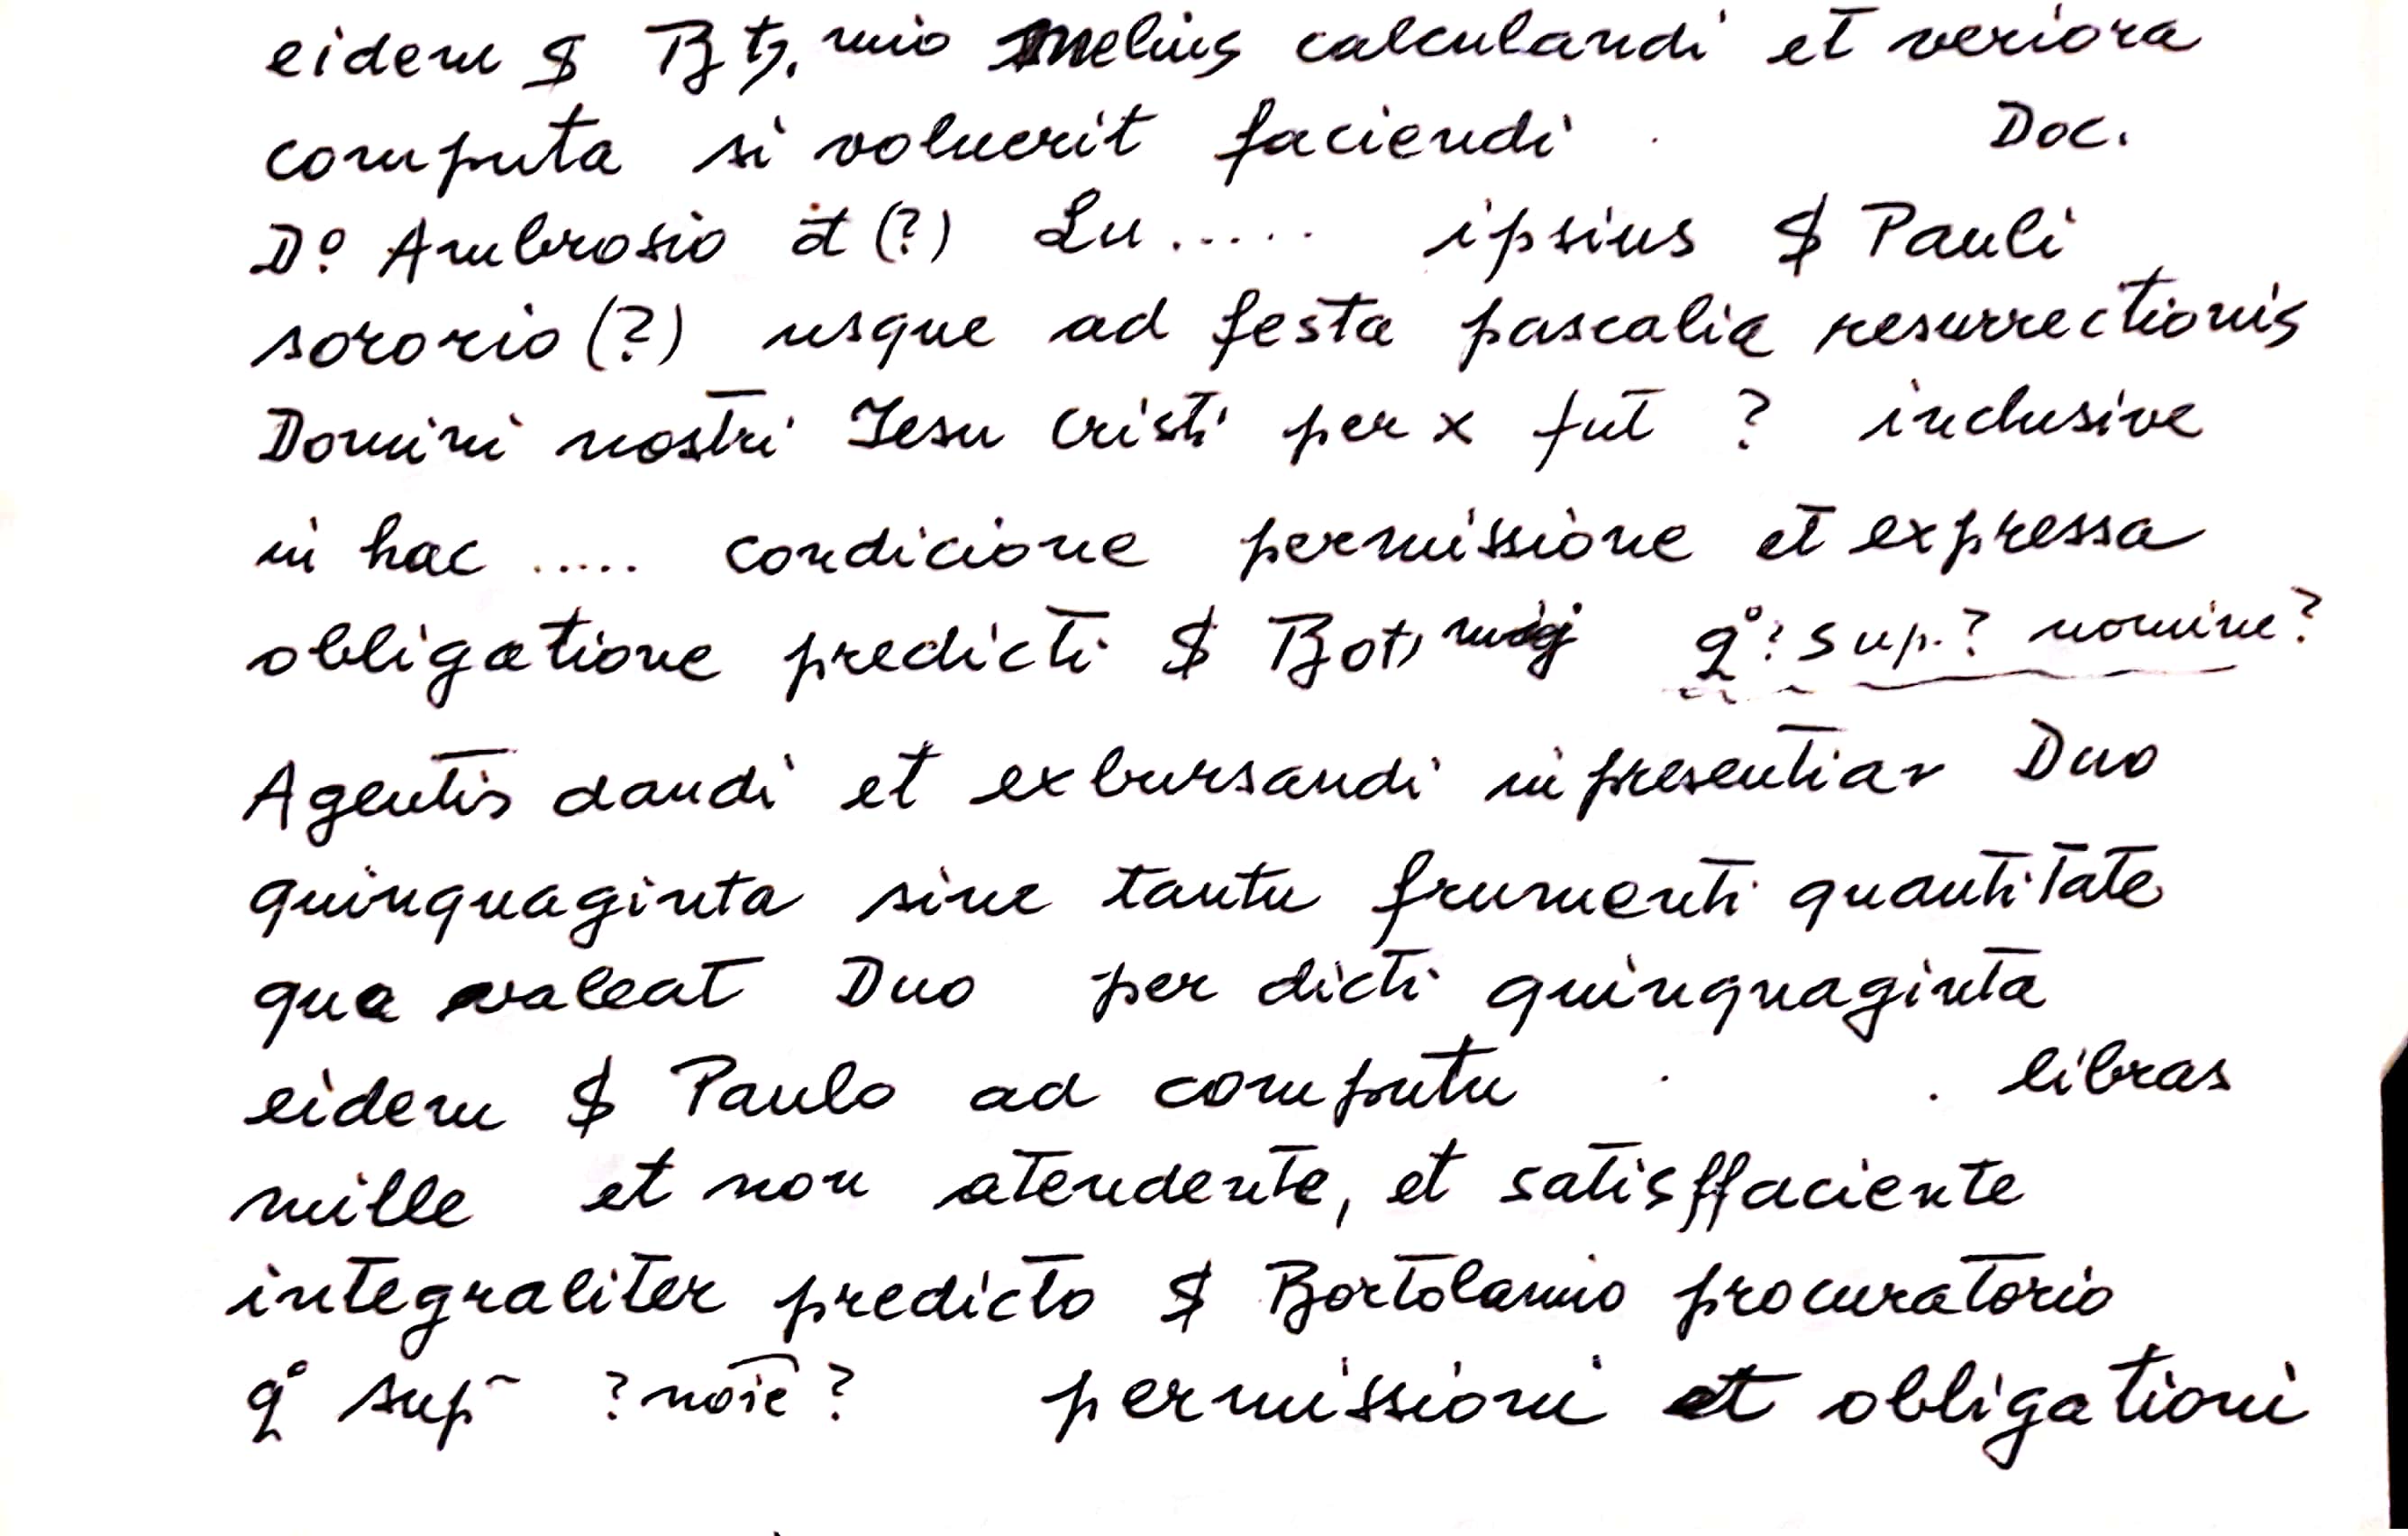 eidem $ Bt, mio melius calculandi et veriora
computa si voluerit faciendi . Doc.
D° Ambrosio et (?) Lu..... ipsius $ Pauli
sororio (?) usque ad festa pascalia resurrectionis
Domini nostri Iesu Cristi per x fut ? inclusive
in hac ..... condicione permissione et expressa
obligatione predicti $ Bot, mij q°? sup.? nomine?
Agentis dandi et exbursandi in presentiar Duo
quinquaginta sine tantu frumenti quantitate
que valeat Duo per dicti quinquaginta
eidem $ Paulo ad computu . . libras
mille et non atendente, et satisffaciente
integraliter predicto $ Bortolamio procuratorio
q° sup~ ? noie ? permissioni et obligationi